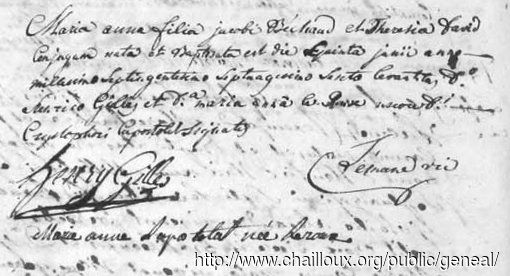 Maria anna filia jacobi Bertraud et Theresia David
Conjugum nata et Baptisata est die Quinta junii anno
millesimo Septingentesimo Septuagesimo Sexto Levantib, D.o
Henrico Gilles et D.a maria anna le Roux uxore D.i
Crystophori Lapostolet Signatis
henry Gilles
Marie anne Lapostolat née
http://www.chailloux.org/public/geneal/